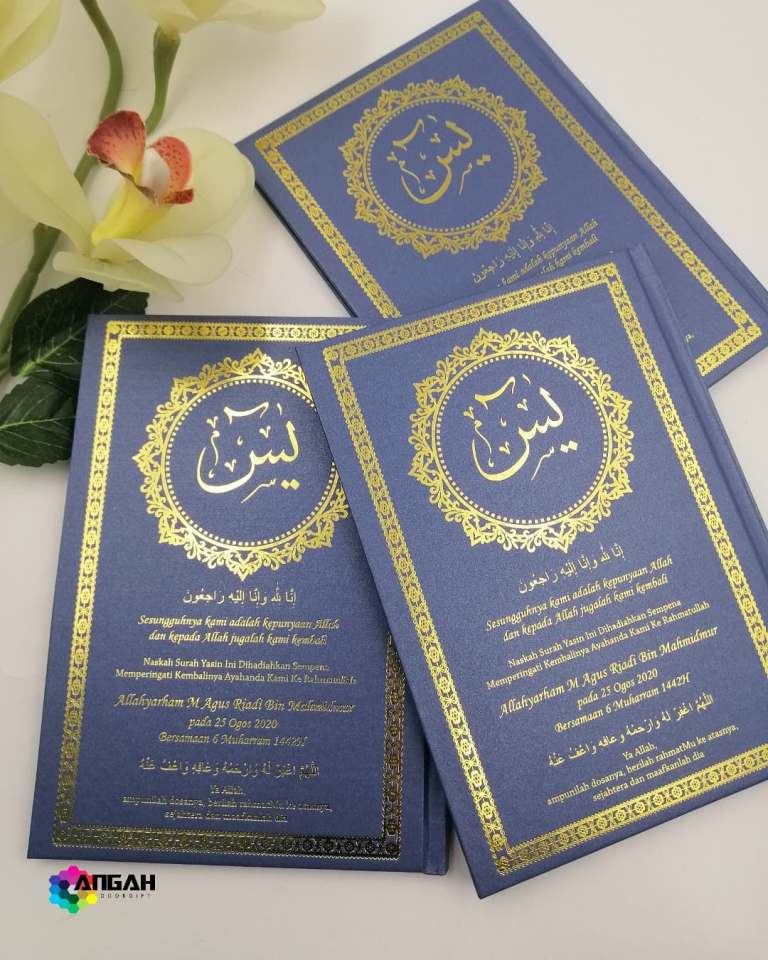 يس
إنا لله وإنا إليه راجعون
kami adalah kepunyaan Allah
jugalah kami kembali
يس
إنا لله وإنا إليه راجعون
Sesungguhnya kami adalah kepunyaan Allah
dan kepada Allah jugalah kami kembali
Naskah Surah Yasin Ini Dihadiahkan Sempena
Memperingati Kembalinya Ayahanda Kami Ke Rahmatullah
Allahyarham M Agus Riadi Bin Mahmidmur
pada 25 Ogos 2020
Bersamaan 6 Muharram 1442H
اللهم اغفر له وارحمه وعافه واعف عنه
Ya Allah,
ampunilah dosanya, berilah rahmatMu ke atasnya,
sejahtera dan maafkanlah dia
يس
إنا لله وإنا إليه راجعون
Sesungguhnya kami adalah kepunyaan Allah
dan kepada Allah jugalah kami kembali
Naskah Surah Yasin Ini Dihadiahkan Sempena
Memperingati Kembalinya Ayahanda Kami Ke Rahmatullah
Allahyarham M Agus Riadi Bin Mahmidmur
pada 25 Ogos 2020
Bersamaan 6 Muharram 1442H
اللهم اغفر له وارحمه وعافه واعف عنه
Ya Allah,
ampunilah dosanya, berilah rahmatMu ke atasnya,
sejahtera dan maafkanlah dia
ANGAH
DOORGIFT